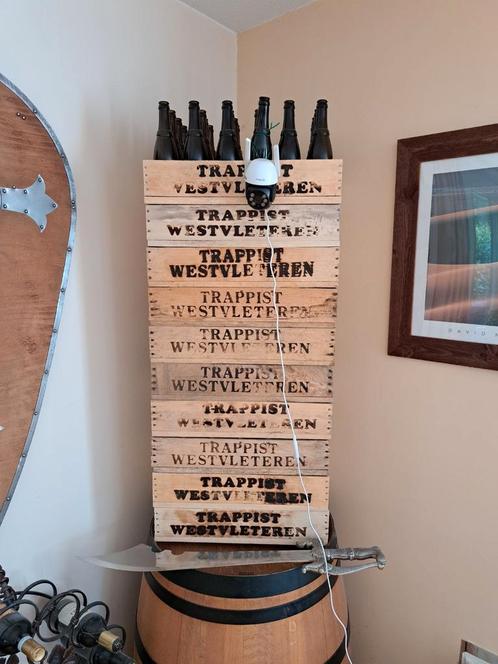 TRAPPIST
WESTVLETEREN
TRAPPIST
WESTVLETEREN
TRAPPIST
WESTVLETEREN
TRAPPIST
WESTVLETEREN
TRAPPIST
WESTVLETEREN
TRAPPIST
WESTVLETEREN
TRAPPIST
WESTVLETEREN
TRAPPIST
WESTVLETEREN
TRAPPIST
WESTVLETEREN
TRAPPIST
WESTVLETEREN
DAVID